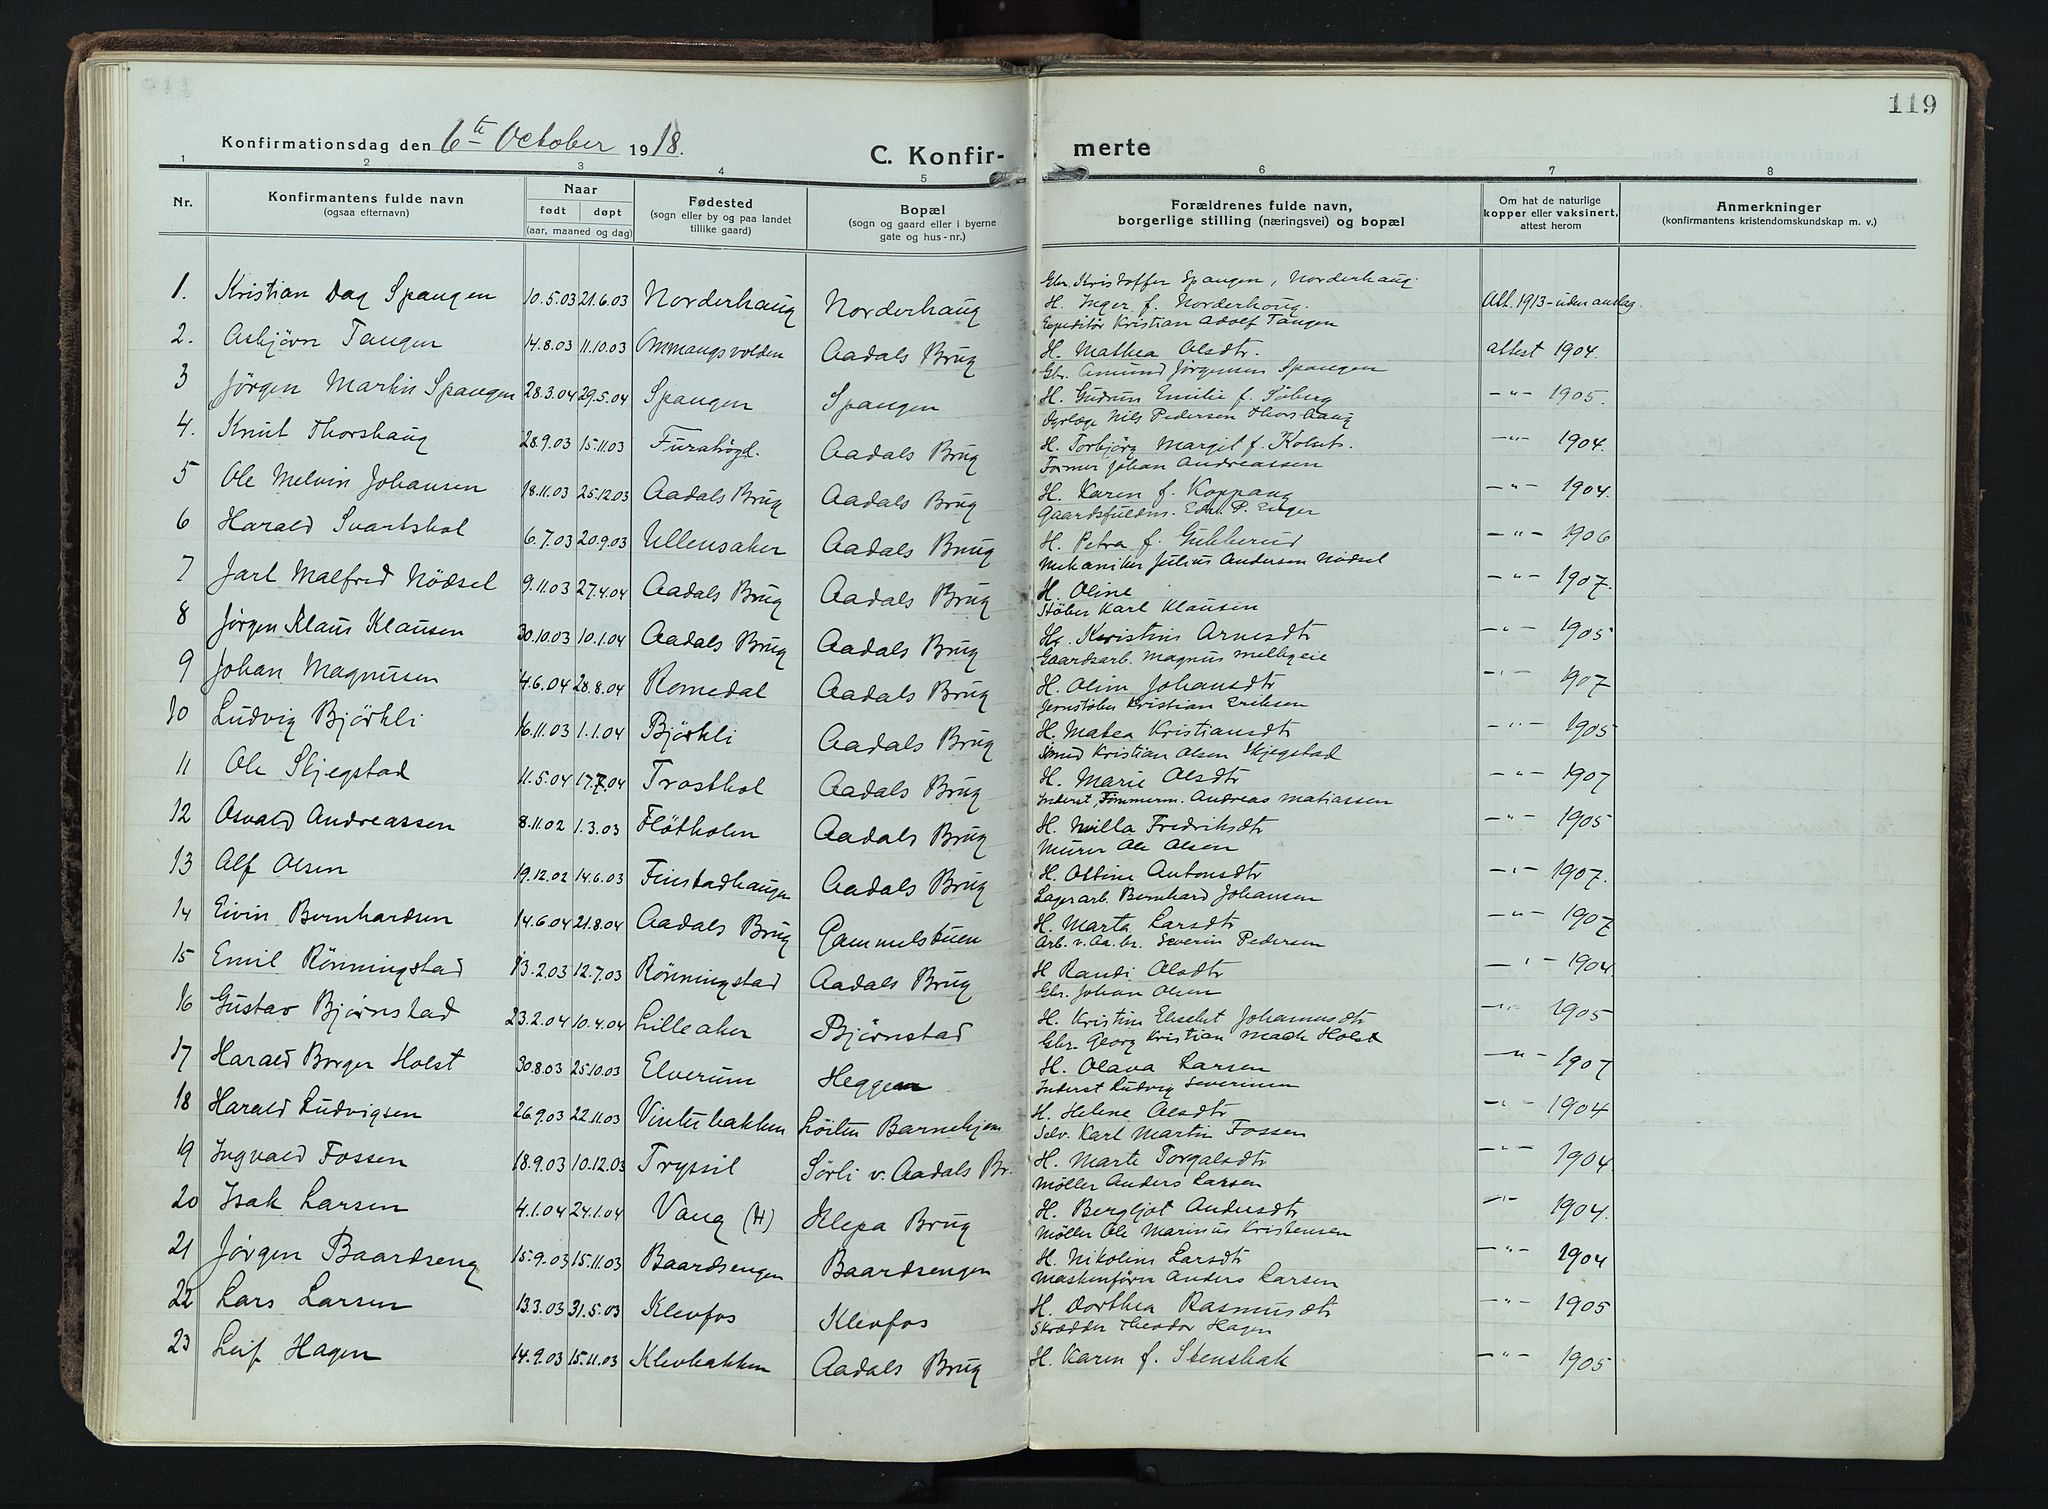 119
Konfirmationsdag den 6te October 1918.
C. Konfir- merte
1 2 3 4 5 6 7 8
Nr. Konfirmantens fulde navn (ogsaa efternavn) Naar født døpt (aar, maaned og dag) Fødested (sogn eller by og paa landet tillike gaard) Bopæl (sogn og gaard eller i byerne gate og hus-nr.) Forældrenes fulde navn, borgerlige stilling (næringsvei) og bopæl Om hat de naturlige kopper eller vaksinert, attest herom Anmerkninger (konfirmantens kristendomskundskap m. v.)
Gbr. Kristoffer Spangen, Norderhaug.
1. Kristian Dag Spangen 10.5.03 21.6.03 Norderhaug Norderhaug H. Inger f. Norderhaug. Att. 1913 - uden anslag.
Expeditör Kristian Adolf Tangen
2. Asbjörn Tangen 14.8.03 11.10.03 Ommangsvolden Aadals Brug H. Mathea Olsdtr. attest 1904.
Gbr. Amund Jörgensen Spangen
3 Jörgen Martin Spangen 28.3.04 29.5.04 Spangen Spangen H. Gudrun Emilie f. Söberg -"- 1905.
Dyrlæge Nils Pedersen Thorshaug
4. Knut Thorshaug 28.9.03 15.11.03 Furuhögd. Aadals Brug H. Torbjörg Margit f. Kolset. -"- 1904.
Former Johan Andreassen
5 Ole Melvin Johansen 18.11.03 25.12.03 Aadals Brug Aadals Brug H. Karen f. Koppang -"- 1904.
Gaardsfuldm. Edv. P. Enger
6 Harald Svartshol 6.7.03 20.9.03 Ullensaker Aadals Brug H. Petra f. Gulkerud -"- 1906
Mekaniker Julius Andersen Nödsel
7 Jarl Malfred Nödsel 9.11.03 27.4.04 Aadals Brug Aadals Brug H. Oline -"- 1907.
Støber Karl Klausen
8 Jörgen Klaus Klausen 30.10.03 10.1.04 Aadals Brug Aadals Brug H. Kristine Arnesdtr -"- 1905
Gaardsarb. Magnus Melbyeie
9 Johan Magnusen 4.6.04 28.8.04 Romedal Aadals Brug H. Oline Johansdtr -"- 1907
Jernstøber Kristian Eriksen
10 Ludvig Björkli 16.11.03 1.1.04 Björkli Aadals Brug H. Matea Kristiansdtr -"- 1905
Smed Kristian Olsen Skjegstad
11 Ole Skjegstad 11.5.04 17.7.04 Trosthol Aadals Brug H. Marie Olsdtr -"- 1907
Inderst, Tömmerm. Andreas Matiassen
12 Osvald Andreassen 8.11.02 1.3.03 Fløtholen Aadals Brug H. Milla Fredriksdtr -"- 1905
Murer Ole Olsen
13 Alf Olsen 19.12.02 14.6.03 Finstadhaugen Aadals Brug H. Ottine Antonsdtr -"- 1907.
Lagerarb. Bernhard Johansen
14 Eivin Bernhardsen 14.6.04 21.8.04 Aadals Brug Gammelstuen H. Marta Larsdtr -"- 1907
Arb. v. Aa. br. Severin Pedersen
15 Emil Rönningstad 13.2.03 12.7.03 Rönningstad Aadals Brug H Randi Olsdtr -"- 1904.
Gbr. Johan Olsen
16 Gustav Björnstad 23.2.04 10.4.04 Lilleaker Björnstad H. Kristine Elisebet Johannesdtr -"- 1905
Gbr. Georg Kristian Mack Holst
17 Harald Borger Holst 30.8.03 25.10.03 Elverum Heggen H. Olava Larsen -"- 1907
Inderst Ludvig Severinsen
18 Harald Ludvigsen 26.9.03 22.11.03 Vinterbakken Löiten Barnehjem H. Helene Olsdtr -"- 1904
Selv. Karl Martin Fossen
19 Ingvald Fossen 18.9.03 10.12.03 Trysil Sörli v. Aadals Br. H. Marte Torgalsdtr -"- 1904
Møller Anders Larsen
20 Isak Larsen 4.1.04 24.1.04 Vang (H) Klepa Brug H. Bergljot Andersdtr -"- 1904.
Møller Ole Marinus Kristensen
21 Jörgen Baardseng 15.9.03 15.11.03 Baardsengen Baardsengen H. Nikoline Larsdtr -"- 1904
Maskinfører Anders Larsen
22 Lars Larsen 13.3.03 31.5.03 Klevfos Klevfos H. Dorthea Rasmusdtr -"- 1905
Skrædder Theodor Hagen
23 Leif Hagen 14.9.03 15.11.03 Klevbakken Aadals Brug H. Karen f. Stensbak -"- 1905